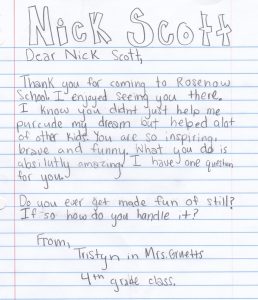 Nick Scott
Dear Nick Scott,
Thank you for coming to Rosenow
School. I enjoyed seeing you there.
I know you didnt just help me
purcude my dream but helped alot
of other kids. You are so inspiring,
brave and funny. What you do is
absilutly amazing! I have one question
for you.
Do you ever get made fun of still?
If so how do you handle it?
From,
Tristyn in Mrs. Gruetts
4th grade class.